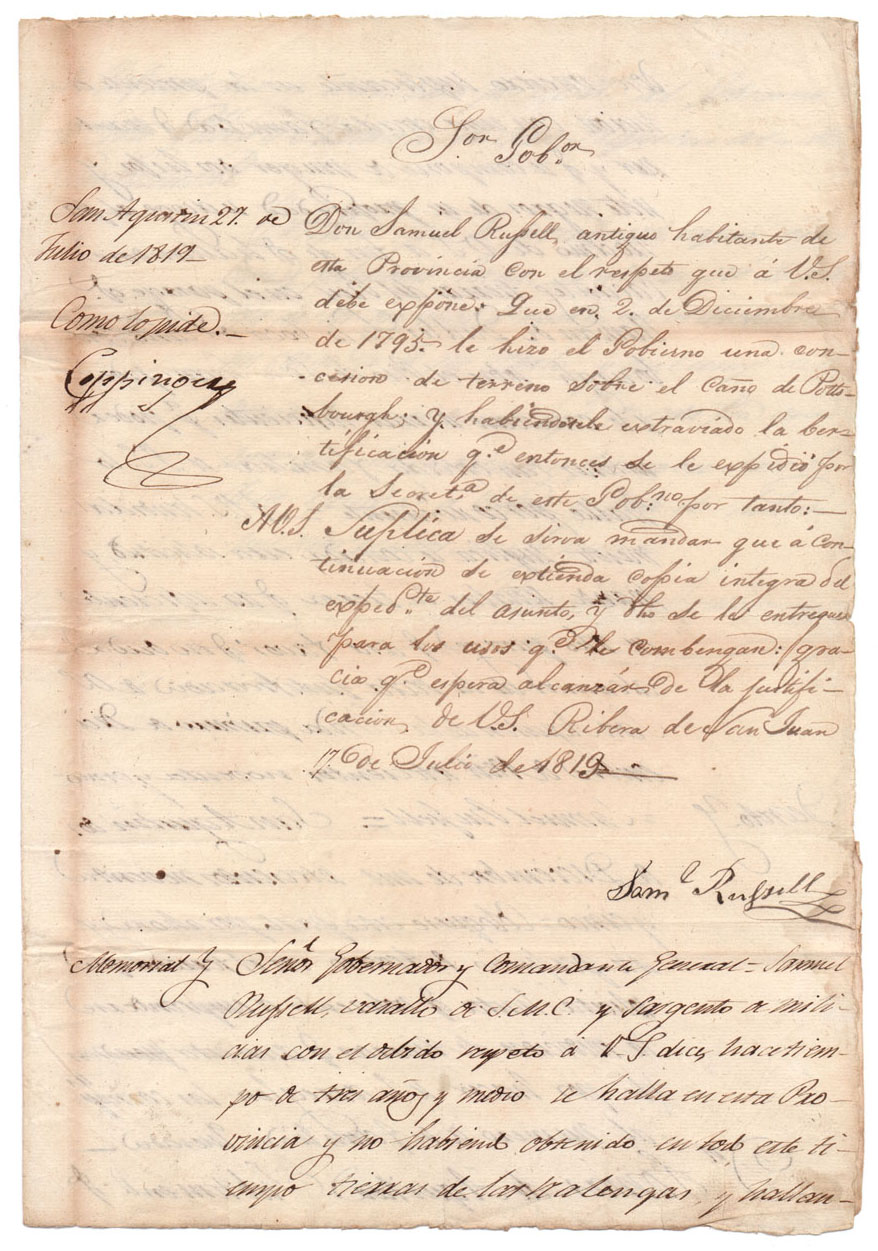 S.or Gob.or
San Agustin 27. de
Julio de 1819
Como lo pide.
Coppinger
Don Samuel Russell, antiguo habitante de
esta Provincia con el respeto que á V.S.
debe expone: Que en 2. de Diciembre
de 1795. le hizo el Gobierno una con-
-cesion de terreno sobre el caño de Potts-
bourgh: y habiendosele extraviado la cer-
tificacion q.e entonces se le expidió por
la Secret.a de este Gob.no por tanto:
A V.S. Suplica se sirva mandar que á con-
tinuacion se extienda copia integra del
exped.te del asunto, y se le entregue
para los usos q.e le combengan: gra-
cia q.e espera alcanzár de la justifi-
cacion, de V.S. Ribera de San Juan
17 de Julio de 1819
Sam.l Russell
Memorial Señor Gobernador y Comandante General = Samuel
Russell, vasallo de S.M.C. y Sargento de mili
cias con el debido respeto á V.S. dice, hace tiem-
po de tres años y medio se halla en esta Pro-
vincia y no habiend obtenido en tod este ti-
empo tierras de las realengas, y hallan-